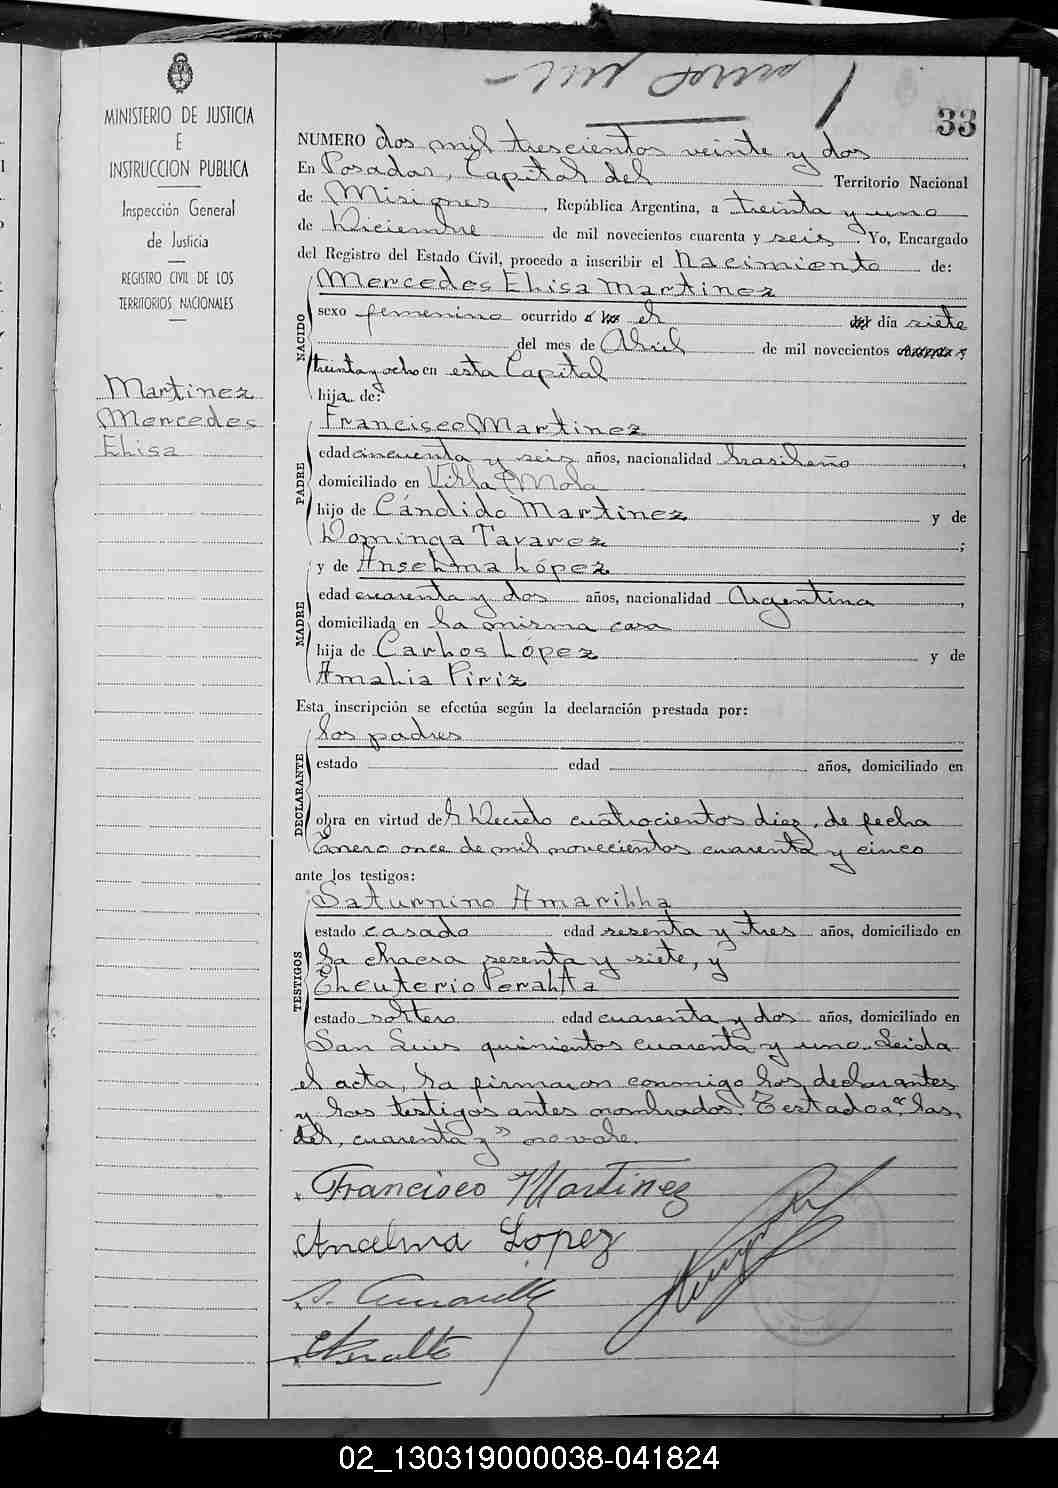 33
MINISTERIO DE JUSTICIA
E
INSTRUCCION PUBLICA
Inspección General
de Justicia
REGISTRO CIVIL DE LOS
TERRITORIOS NACIONALES
Martinez
Mercedes
Elisa
NUMERO dos mil trescientos veinte y dos
En Posadas, Capital del Territorio Nacional
de Misiones, República Argentina, a treinta y uno
de Diciembre de mil novecientos cuarenta y seis. Yo, Encargado
del Registro del Estado Civil, procedo a inscribir el Nacimiento de:
Mercedes Elisa Martinez
NACIDO
sexo femenino ocurrido a las el del día siete
del mes de Abril de mil novecientos cuarenta y
treinta y ocho en esta Capital
hija de:
Francisco Martinez
PADRE
edad cincuenta y seis años, nacionalidad brasileño,
domiciliado en Villa Mola
hijo de Cándido Martinez y de
Dominga Tavarez;
y de Anselma López
MADRE
edad cuarenta y dos años, nacionalidad Argentina,
domiciliada en la misma casa
hija de Carlos López y de
Amalia Piriz
Esta inscripción se efectúa según la declaración prestada por:
los padres
DECLARANTE
estado edad años, domiciliado en
obra en virtud del Decreto cuatrocientos diez, de fecha
Enero once de mil novecientos cuarenta y cinco
ante los testigos:
Saturnino Amarilla
TESTIGOS
estado casado edad sesenta y tres años, domiciliado en
la chacra sesenta y siete, y
Eleuterio Peralta
estado soltero edad cuarenta y dos años, domiciliado en
San Luis quinientos cuarenta y uno. Leida
el acta, la firmaron conmigo los declarantes
y los testigos antes nombrados. Testado "a las,
del, cuarenta y" no vale.
Francisco Martinez
Ancelma Lopez
S. Amarilla
E Peralta
02_130319000038-041824